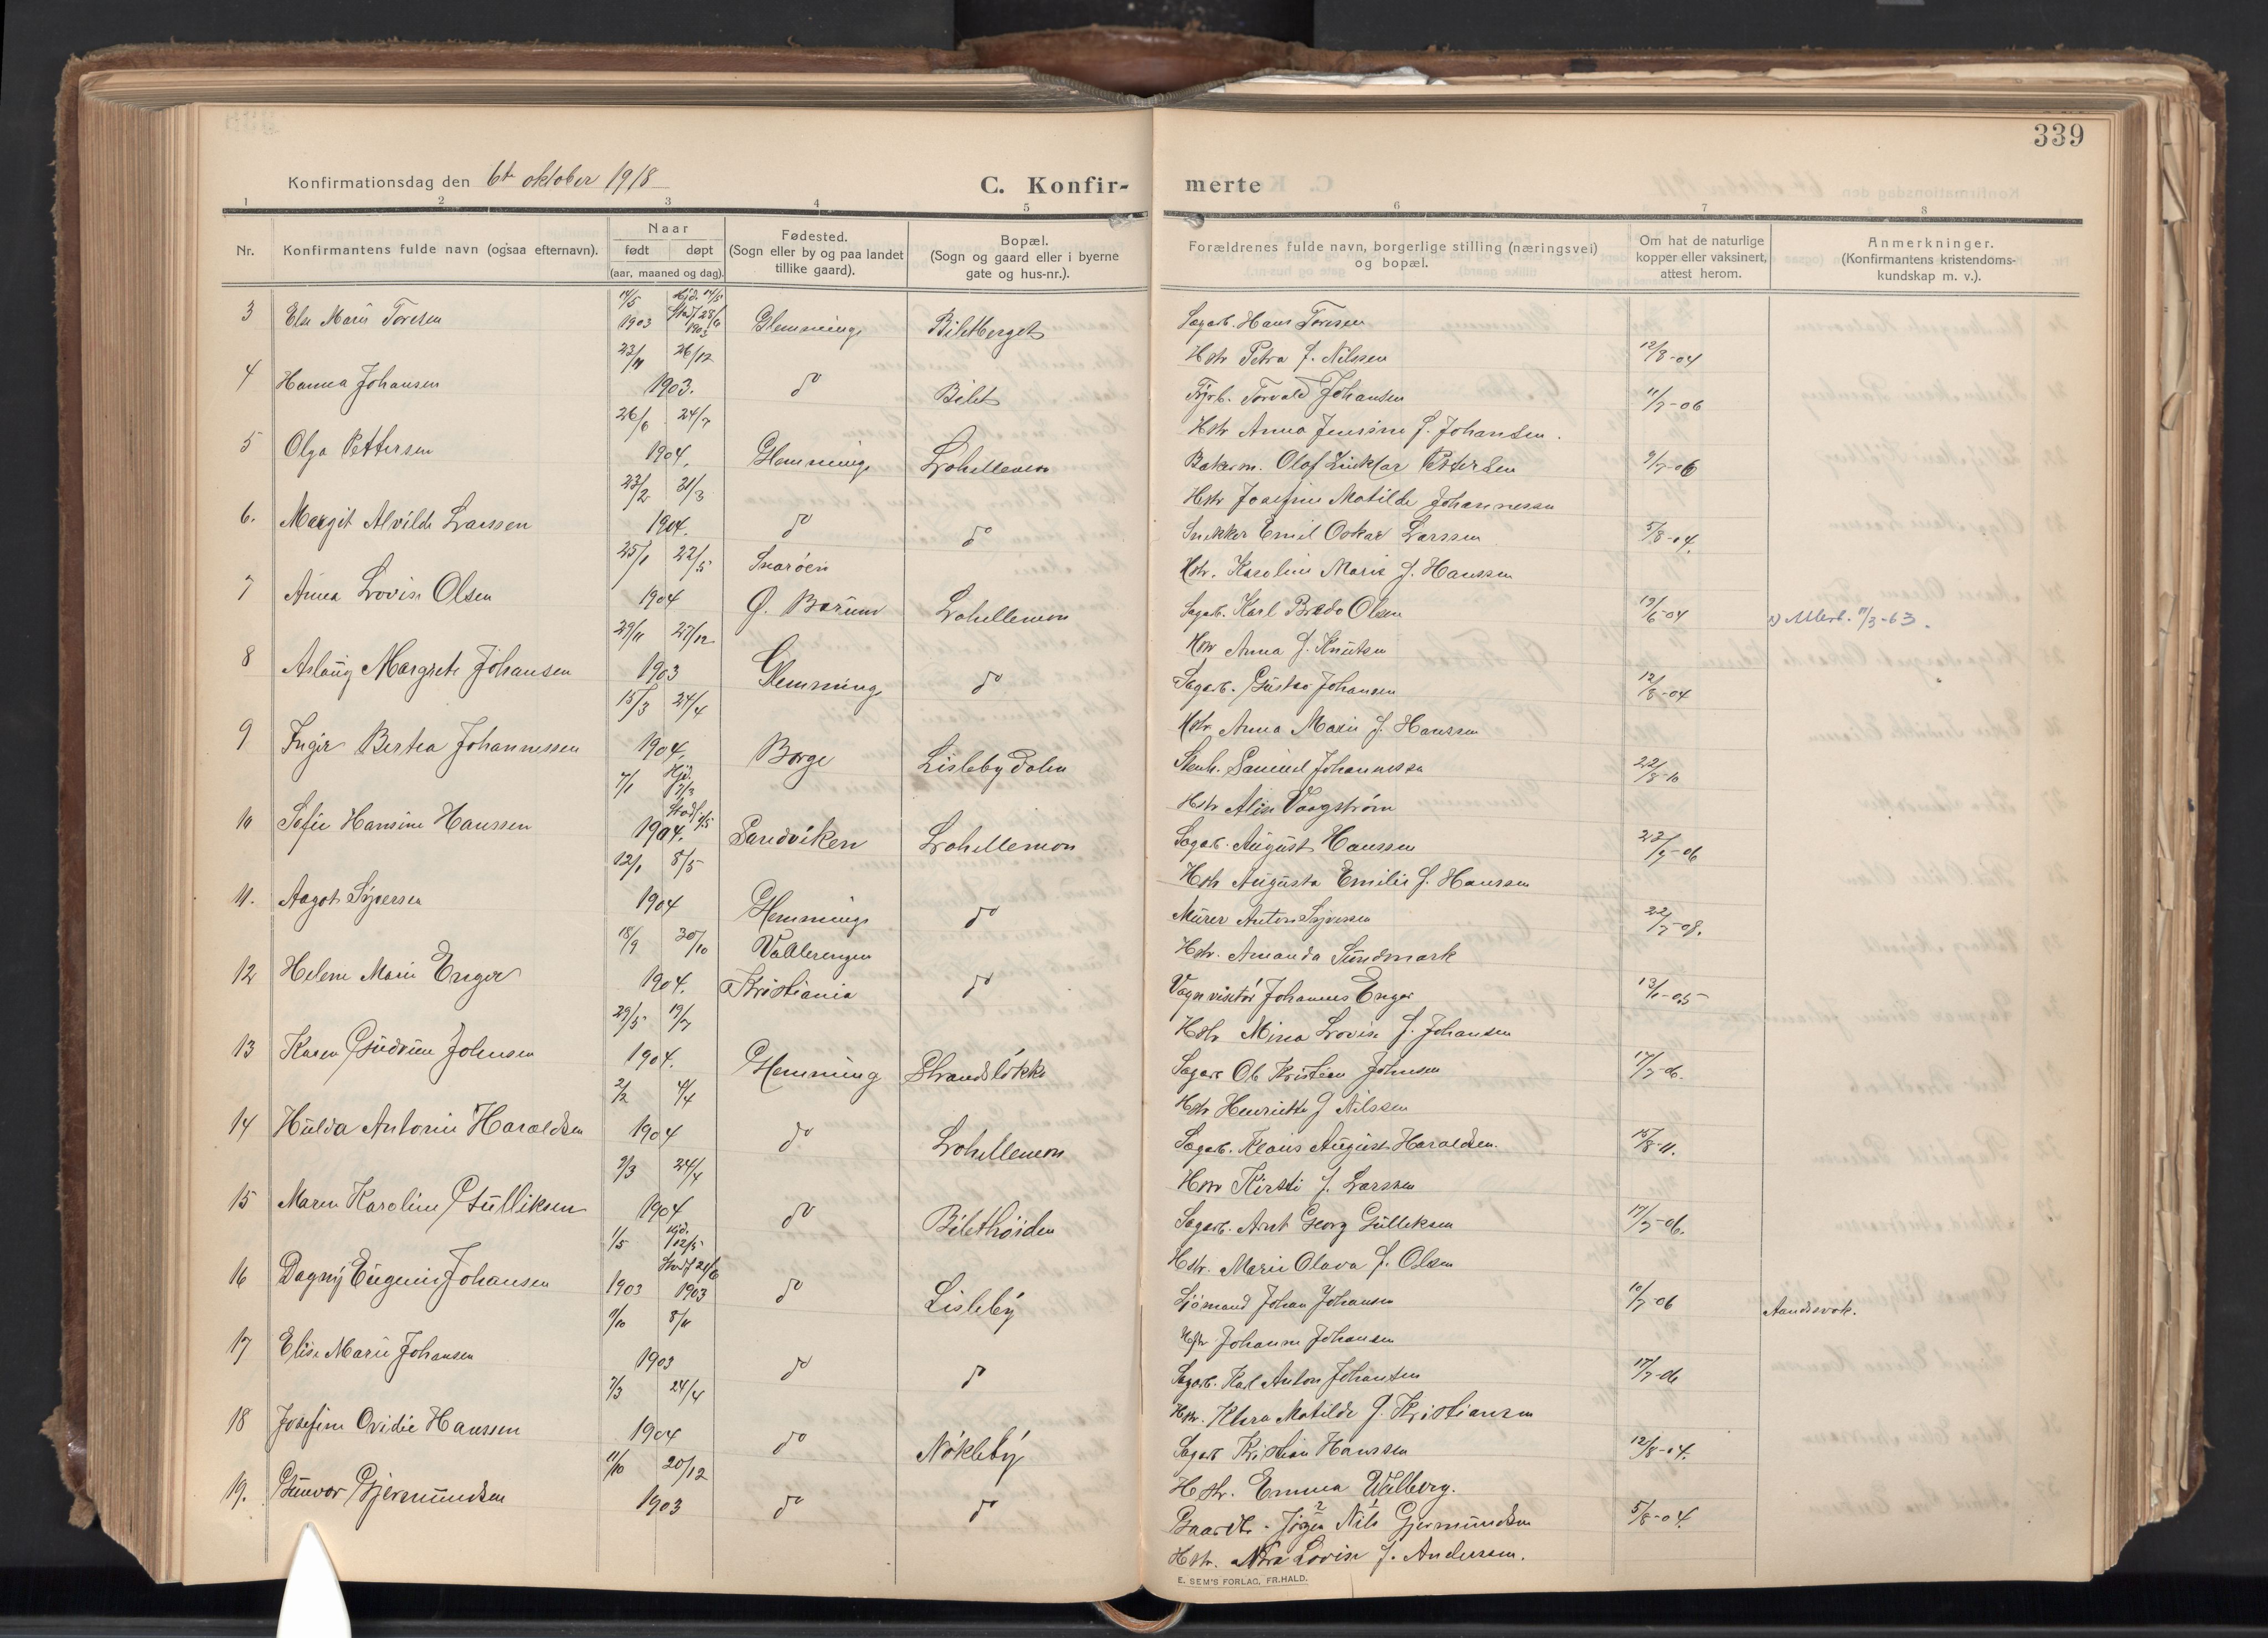 339
Konfirmationsdag den 6te oktober 1918
C. Konfir- merte
1 2 3 4 5 6 7 8
Nr.
Konfirmantens fulde navn (ogsaa efternavn).
Naar
født døpt
(aar, maaned og dag).
Fødested.
(Sogn eller by og paa landet
tillike gaard).
Bopæl.
(Sogn og gaard eller i byerne
gate og hus-nr.).
Forældrenes fulde navn, borgerlige stilling (næringsvei)
og bopæl.
Om hat de naturlige
kopper eller vaksinert,
attest herom.
Anmerkninger.
(Konfirmantens kristendoms-
kundskap m. v.).
3 Else Marie Toresen 14/5 1903 Hjd. 14/5 Stadf 28/6 1903 Glemminge Biletberget Sagarb. Hans Toresen
Hstr Petra f. Nilssen 12/8-04
4 Hanna Johansen 23/11 26/12 1903. do Bilet Fyrb. Torvald Johansen 11/7-06
Hstr Anna Jensine f. Johansen.
5 Olga Pettersen 26/6 24/7 1904. Glemminge Lohellemon Bakerm. Olaf Pettersen 9/7-06
Hstr Josefine Matilde Johannessen
6. Margit Alvilde Larssen 23/2 31/3 1904. do do Snekker Emil Oskar Larssen 5/8-04.
Hstr. Karoline Marie f. Hanssen
7 Anna Lovise Olsen 25/1 22/5 1904 Snarøen Ø. Bærum Lohellemon Sagarb. Karl Bredo Olsen 19/6-04 Attest. 11/3-63.
Hstr Anna f. Knutsen
8 Aslaug Margrete Johansen 29/11 27/12 1903 Glemminge do Sagarb. Gustav Johansen 12/8-04
Hstr. Anna Marie f. Hanssen
9 Inger Bertea Johannessen 15/3 24/4 1904. Borge Lislebydalen Stenh. Samuel Johannessen 22/8-10
Hstr Alise Vaagstrøm
10 Sofie Hansine Hanssen 7/1 Hjd. 17/3 Stadf 1904. Sandviken Lohellemon Sagarb. August Hanssen 22/7-06
Hstr Augusta Emilie f. Hanssen
11. Aagot Syversen 12/1 8/5 1904 Glemminge do Murer Anton Syversen 22/7-08.
Hstr. Amanda Sundmark
12 Helene Marie Enger 18/9 30/10 1904. Vaallerengen Kristiania do Vognvisitør Johannes Enger 13/1-05
Hstr Mina Lovise f. Johansen
13 Karen Gudrun Johnsen 29/5 19/7 1904. Glemming Strandsløkke Sagarb Ole Kristian Johnsen 17/7-06.
Hstr Henriette f Nilssen
14 Hulda Antonie Haraldsen 2/2 4/4 1904 do Lohellemon Sagarb. Klaus August Haraldsen. 15/8-11.
Hstr Kirsti f. Larssen
15 Maren Karoline Gulliksen 9/3 24/4 1904 do Bilethøiden Sagarb. Arnt Georg Gulliksen 17/7-06.
Hstr. Marie Olava f. Olsen
16 Dagny Eugenie Johansen 1/5 1903 Hjd. 12/5 Stadf 21/6 1903 do Lisleby Sjømand Johan Johansen 10/7-06 Aandssvak.
Hstr Johanne Johansen
17 Elise Marie Johansen 9/10 8/11 1903 do do Sagarb. Karl Anton Johansen 17/7-06
Hstr. Klara Matilde f. Kristiansen
18 Josefine Ovidie Hanssen 7/3 24/4 1904 do Nøkleby Sagarb Kristian Hanssen 12/8-04.
Hstr. Emma Wilberg.
19. Gunvor Gjermundsen 11/10 20/12 1903 do do Gaardbr. Jørgen 2 Nils 1 Gjermundsen 5/8-04.
Hstr. Lovise f. Andersen.
E. SEM'S FORLAG, FR.HALD.